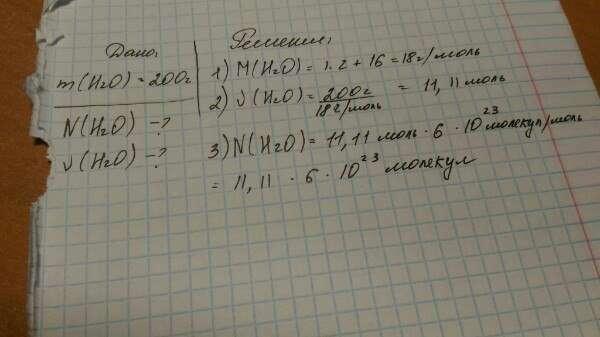 Дано:
m(H₂O) = 200г
N(H₂O) -?
ν(H₂O) -?
Решение:
1) M(H₂O) = 1·2 + 16 = 18г/моль
2) ν(H₂O) = 200г / 18г/моль = 11,11 моль
3) N(H₂O) = 11,11 моль · 6 · 10²³ молекул/моль
= 11,11 · 6 · 10²³ молекул